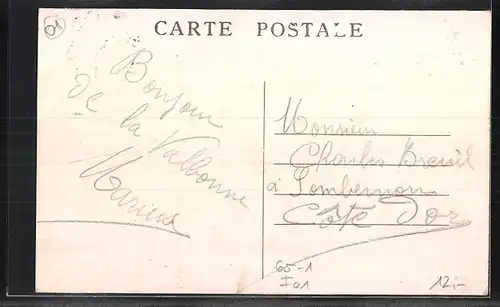 01
CARTE POSTALE
Bonjour
de la Valbonne
Marius
Monsieur
Charles Breuil
à Sombernon
Côte D'or
65-1
I01
12,-